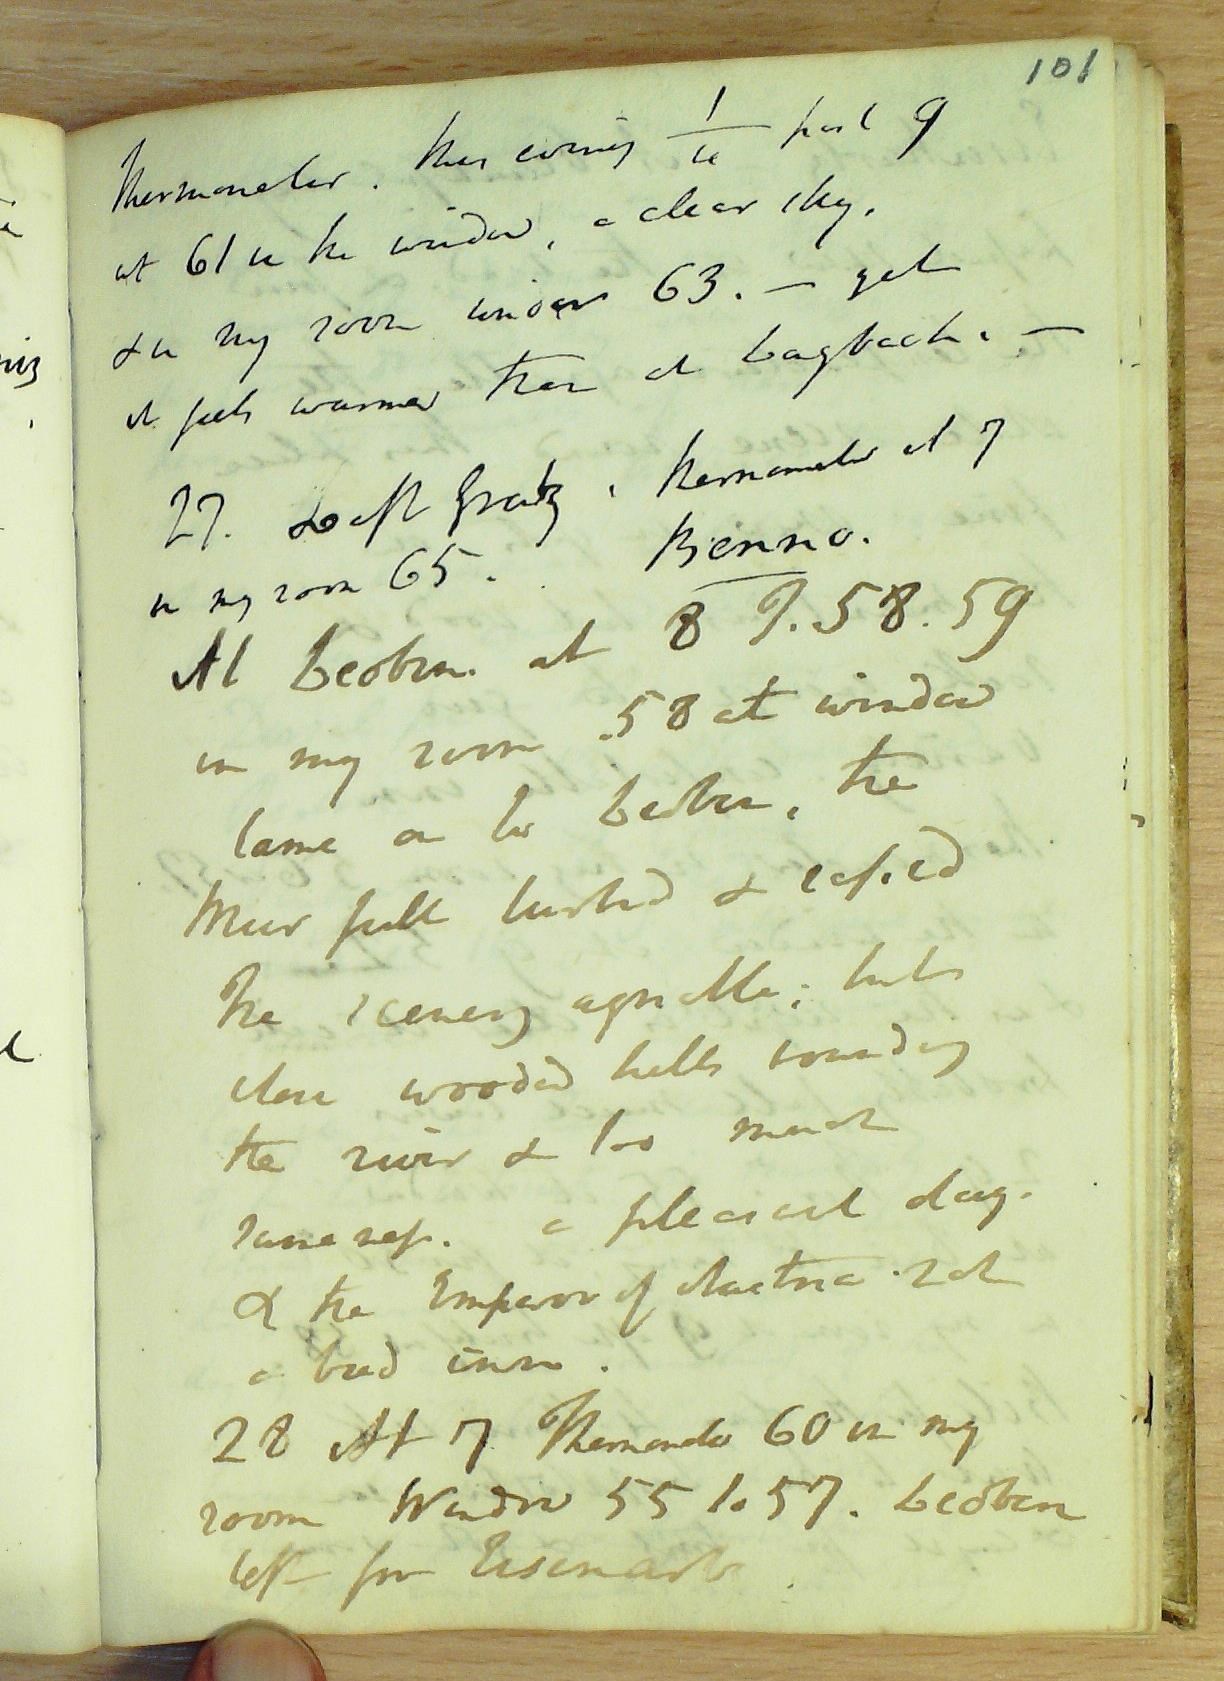 101
Thermometer. this evening 1/4 past 9
at 61 in the window, a clear sky.
& in my room under 63. — yet
it feels warmer than at Laybach. —
27. Left Gratz, thermometer at 7
in my room 65. Bienno.
At Leoben. at 8 T. 58. 59
in my room .58 at window
Came on to Leoben, the
Muer full turbid & rapid
the scenery agreable; but
wooded hills bounding
the river & too much
sameness. a pleasant day.
& the Emperor of Austria
a bad inn.
28 At 7 Thermometer 60 in my
room Window 55 to 57. Leoben
left for Eisenartz